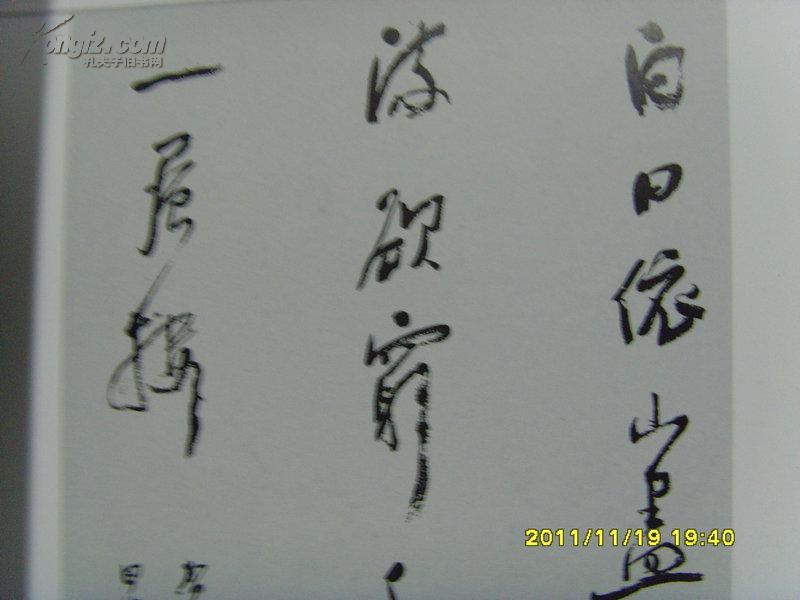 白日依山盡
流欲窮
一層樓
Kongfz.com
孔夫子旧书网
2011/11/19 19:40